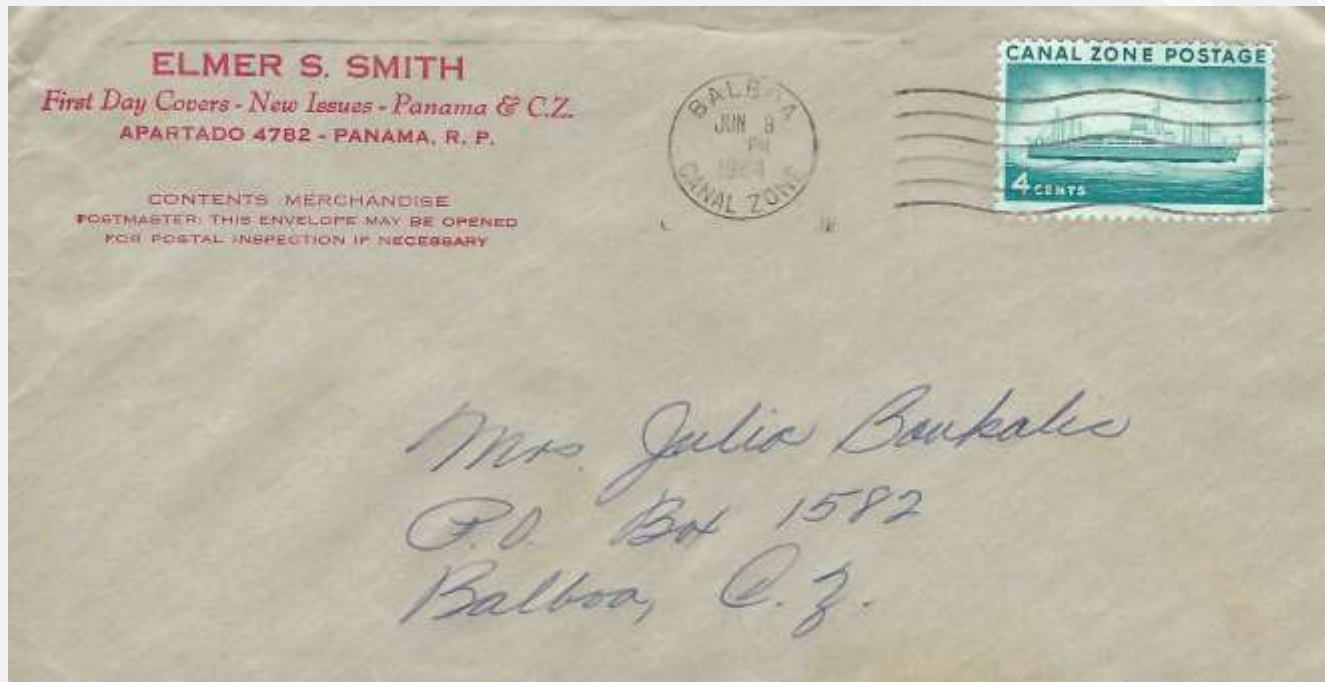 ELMER S. SMITH
First Day Covers - New Issues - Panama & C.Z.
APARTADO 4782 - PANAMA, R. P.
CONTENTS MERCHANDISE
POSTMASTER: THIS ENVELOPE MAY BE OPENED
FOR POSTAL INSPECTION IF NECESSARY
BALBOA
JUN 8
PM
1964
CANAL ZONE
CANAL ZONE POSTAGE
4 CENTS
Mrs. Julia Boukalis
P.O. Box 1582
Balboa, C. Z.